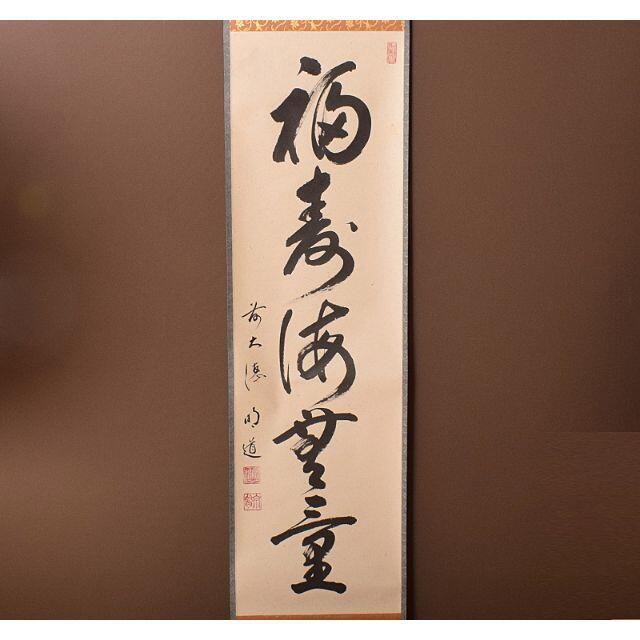 福寿海無量
前大徳明道